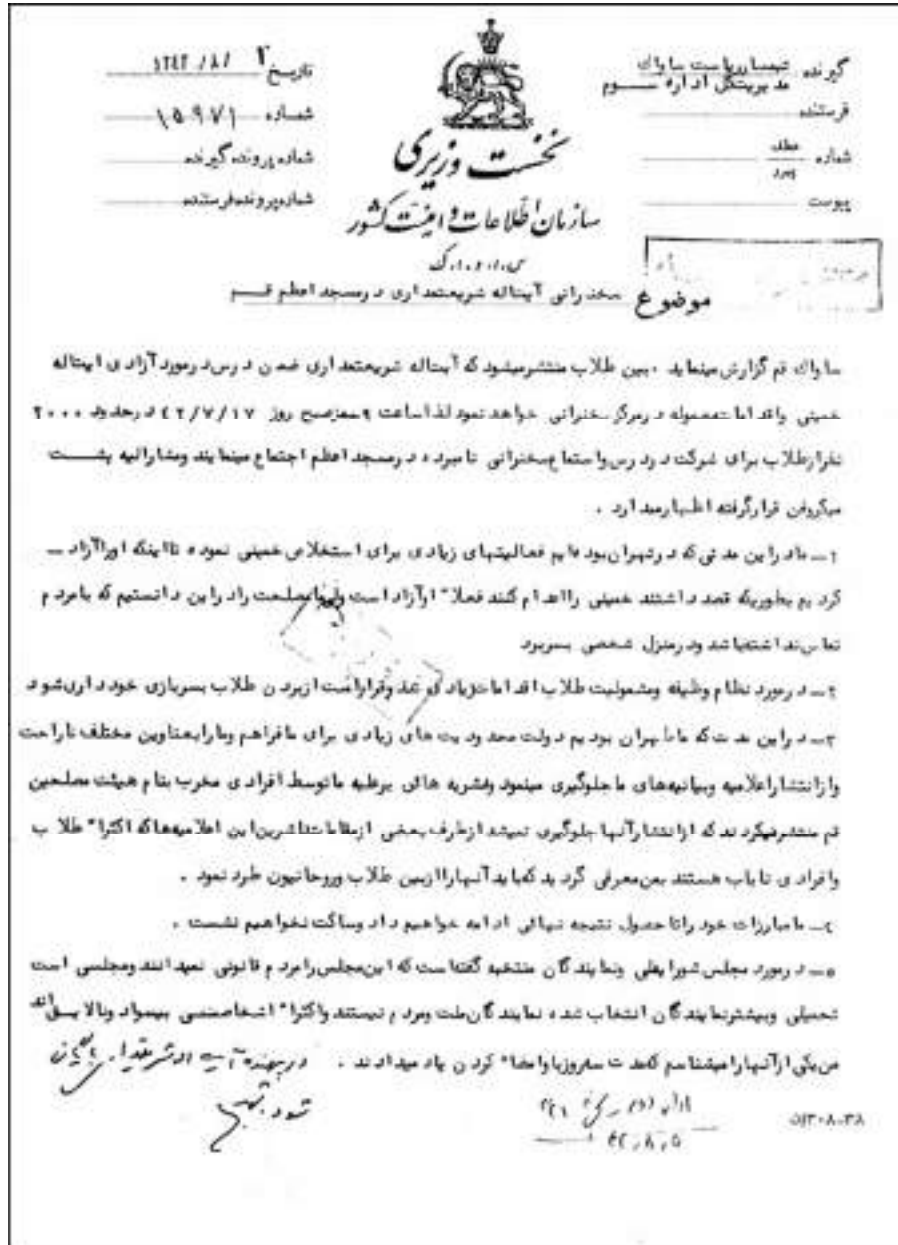 گیرنده تیمسار ریاست ساواک
مدیریتکل اداره سوم
فرستنده
شماره عطف
پیرو
پیوست
نخست وزیری
سازمان اطلاعات و امنیت کشور
س.ا.و.ا.ک
تاریخ ۲ /۸/ ۱۳۴۲
شماره ۱۵۹۷۱
شماره پرونده گیرنده
شماره پرونده فرستنده
موضوع سخنرانی آیتاله شریعتمداری درمسجد اعظم قم
ساواک قم گزارش مینماید ، بین طلاب منتشرمیشود که آیتاله شریعتمداری ضمن درس درمورد آزادی ایتاله
خمینی واقدامات معموله درمرکز سخنرانی خواهد نمود لذا ساعت ۹ صبح روز ۴۲/۷/۱۷ درحدود ۲۰۰۰
نفرازطلاب برای شرکت در درس واستماع سخنرانی نامبرده درمسجد اعظم اجتماع مینمایند ومشارالیه پشت
میکروفن قرارگرفته اظهارمیدارد .
۱ــ مادراین مدتی که درتهران بودیم فعالیتهای زیادی برای استخلاص خمینی نموده تااینکه اوراآزاد ــ
کردیم بطوریکه قصد داشتند خمینی رااعدام کنند فعلا" اوآزاد است ولی مصلحت رادراین دانستیم که بامردم
تماس نداشته باشد ودرمنزل شخصی بسربرد
۲ــ درمورد نظام وظیفه ومشمولیت طلاب اقدامات زیادی شد وقراراست ازبردن طلاب بسربازی خودداری شود
۳ــ دراین مدت که ماتهران بودیم دولت محدودیت های زیادی برای مافراهم ومارابعناوین مختلف ناراحت
وازانتشاراعلامیه وبیانیه‌های ماجلوگیری مینمود ونشریه هائی برعلیه ماتوسط افرادی مخرب بنام هیئت مصلحین
قم منتشرمیکردند که ازانتشارآنها جلوگیری نمیشد ازطرف بعضی ازمقامات ناشرین این اعلامیه‌ها که اکثرا" طلاب
وافرادی ناباب هستند بمن معرفی گردید که باید آنهاراازبین طلاب وروحانیون طرد نمود .
۴ــ مامبارزات خود راتاحصول نتیجه نهائی ادامه خواهیم داد وساکت نخواهیم نشست .
۵ــ درمورد مجلس شورایملی ونمایندگان منتخبه گفته است که این مجلس رامردم قانونی نمیدانند ومجلسی است
تحمیلی وبیشترنمایندگان انتخاب شده نمایندگان ملت ومردم نیستند واکثرا" اشخاصی بیسواد ونالایق اند
من یکی ازآنهارامیشناسم که مدت سه روز باو امضا" کردن یاد میدادند .
شود